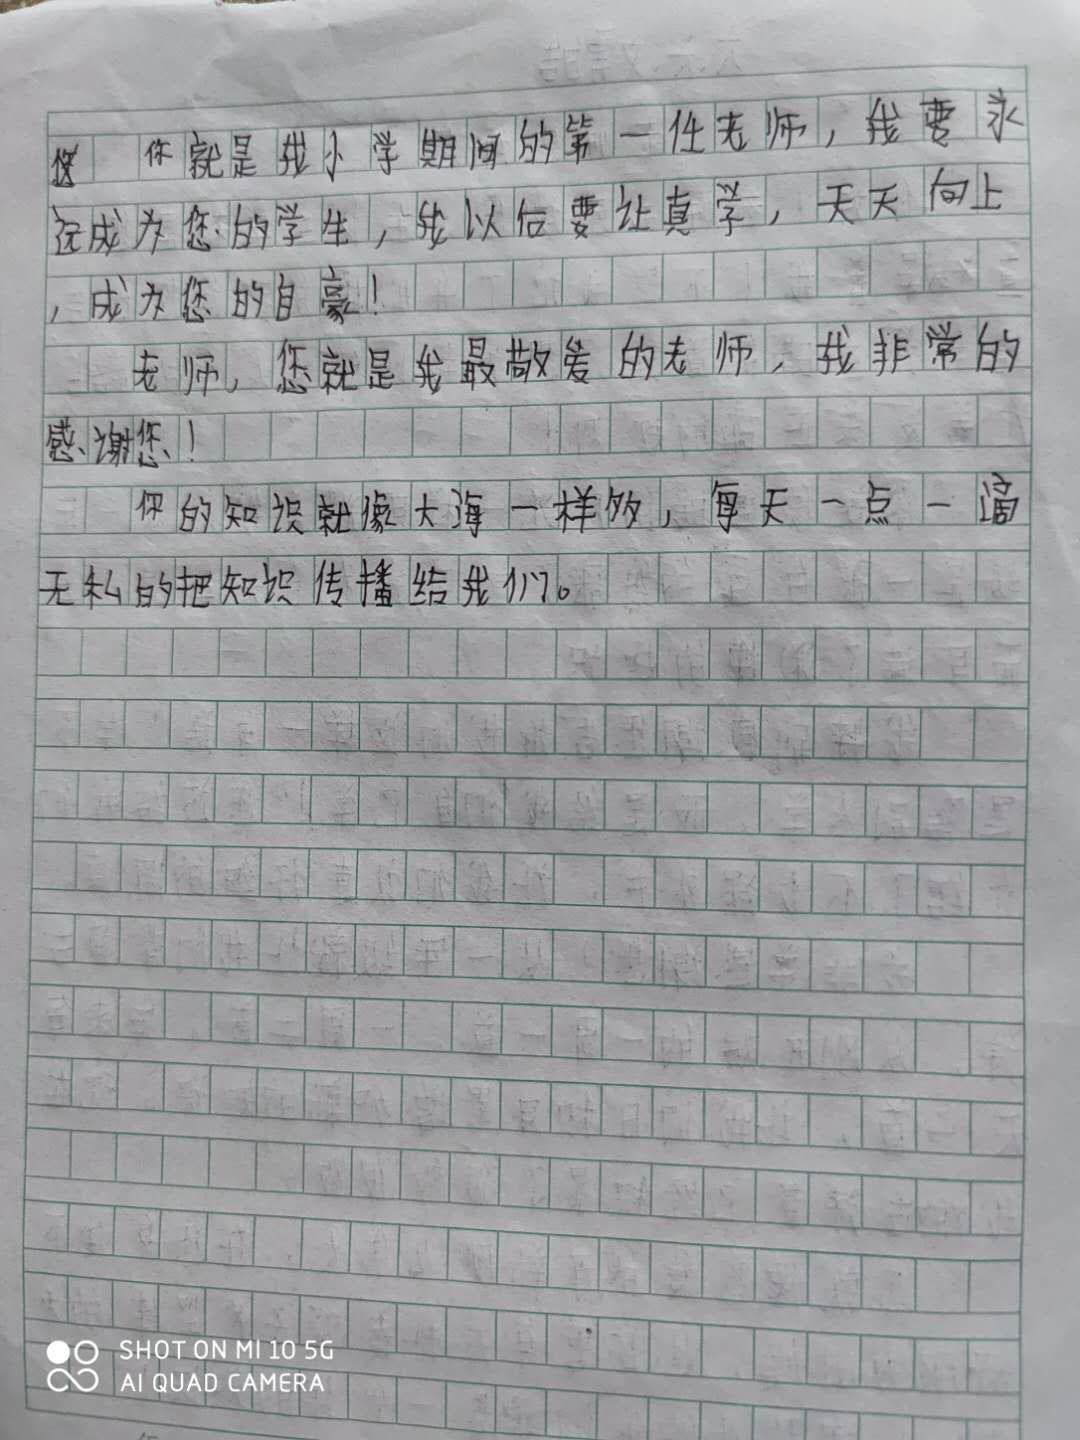 您 你就是我小学期间的第一任老师，我要永
远成为您的学生，我以后要让真学，天天向上
，成为您的自豪！
老师，您就是我最敬爱的老师，我非常的
感谢您！
你的知识就像大海一样多，每天一点一滴
无私的把知识传播给我们。
SHOT ON MI 10 5G
AI QUAD CAMERA